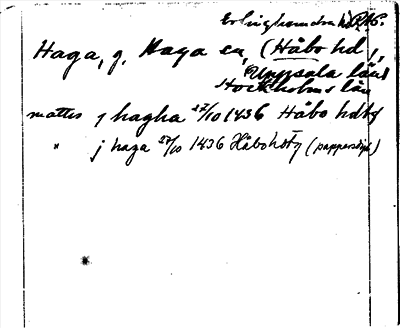 Erlinghundra hd
Haga, g. Haga sn, (Håbo hd),
Uppsala län
Stockholms län
mattis j hagha 27/10 1436 Håbo hdtg
" j haga 27/10 1436 Håbo hdtg (pappersdipl)